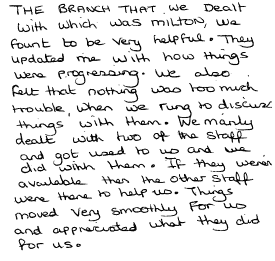 THE BRANCH THAT we Dealt
with which was MILTON, we
fount to be very helpful. They
updated me with how things
were progressing. We also
felt that nothing was too much
trouble, when we rung to discuss
things with them. We manly
dealt with two of the staff
and got used to us and we
did with them. If they weren
available then the other staff
were there to help us. Things
moved very smoothly for us
and appreciated what they did
for us.